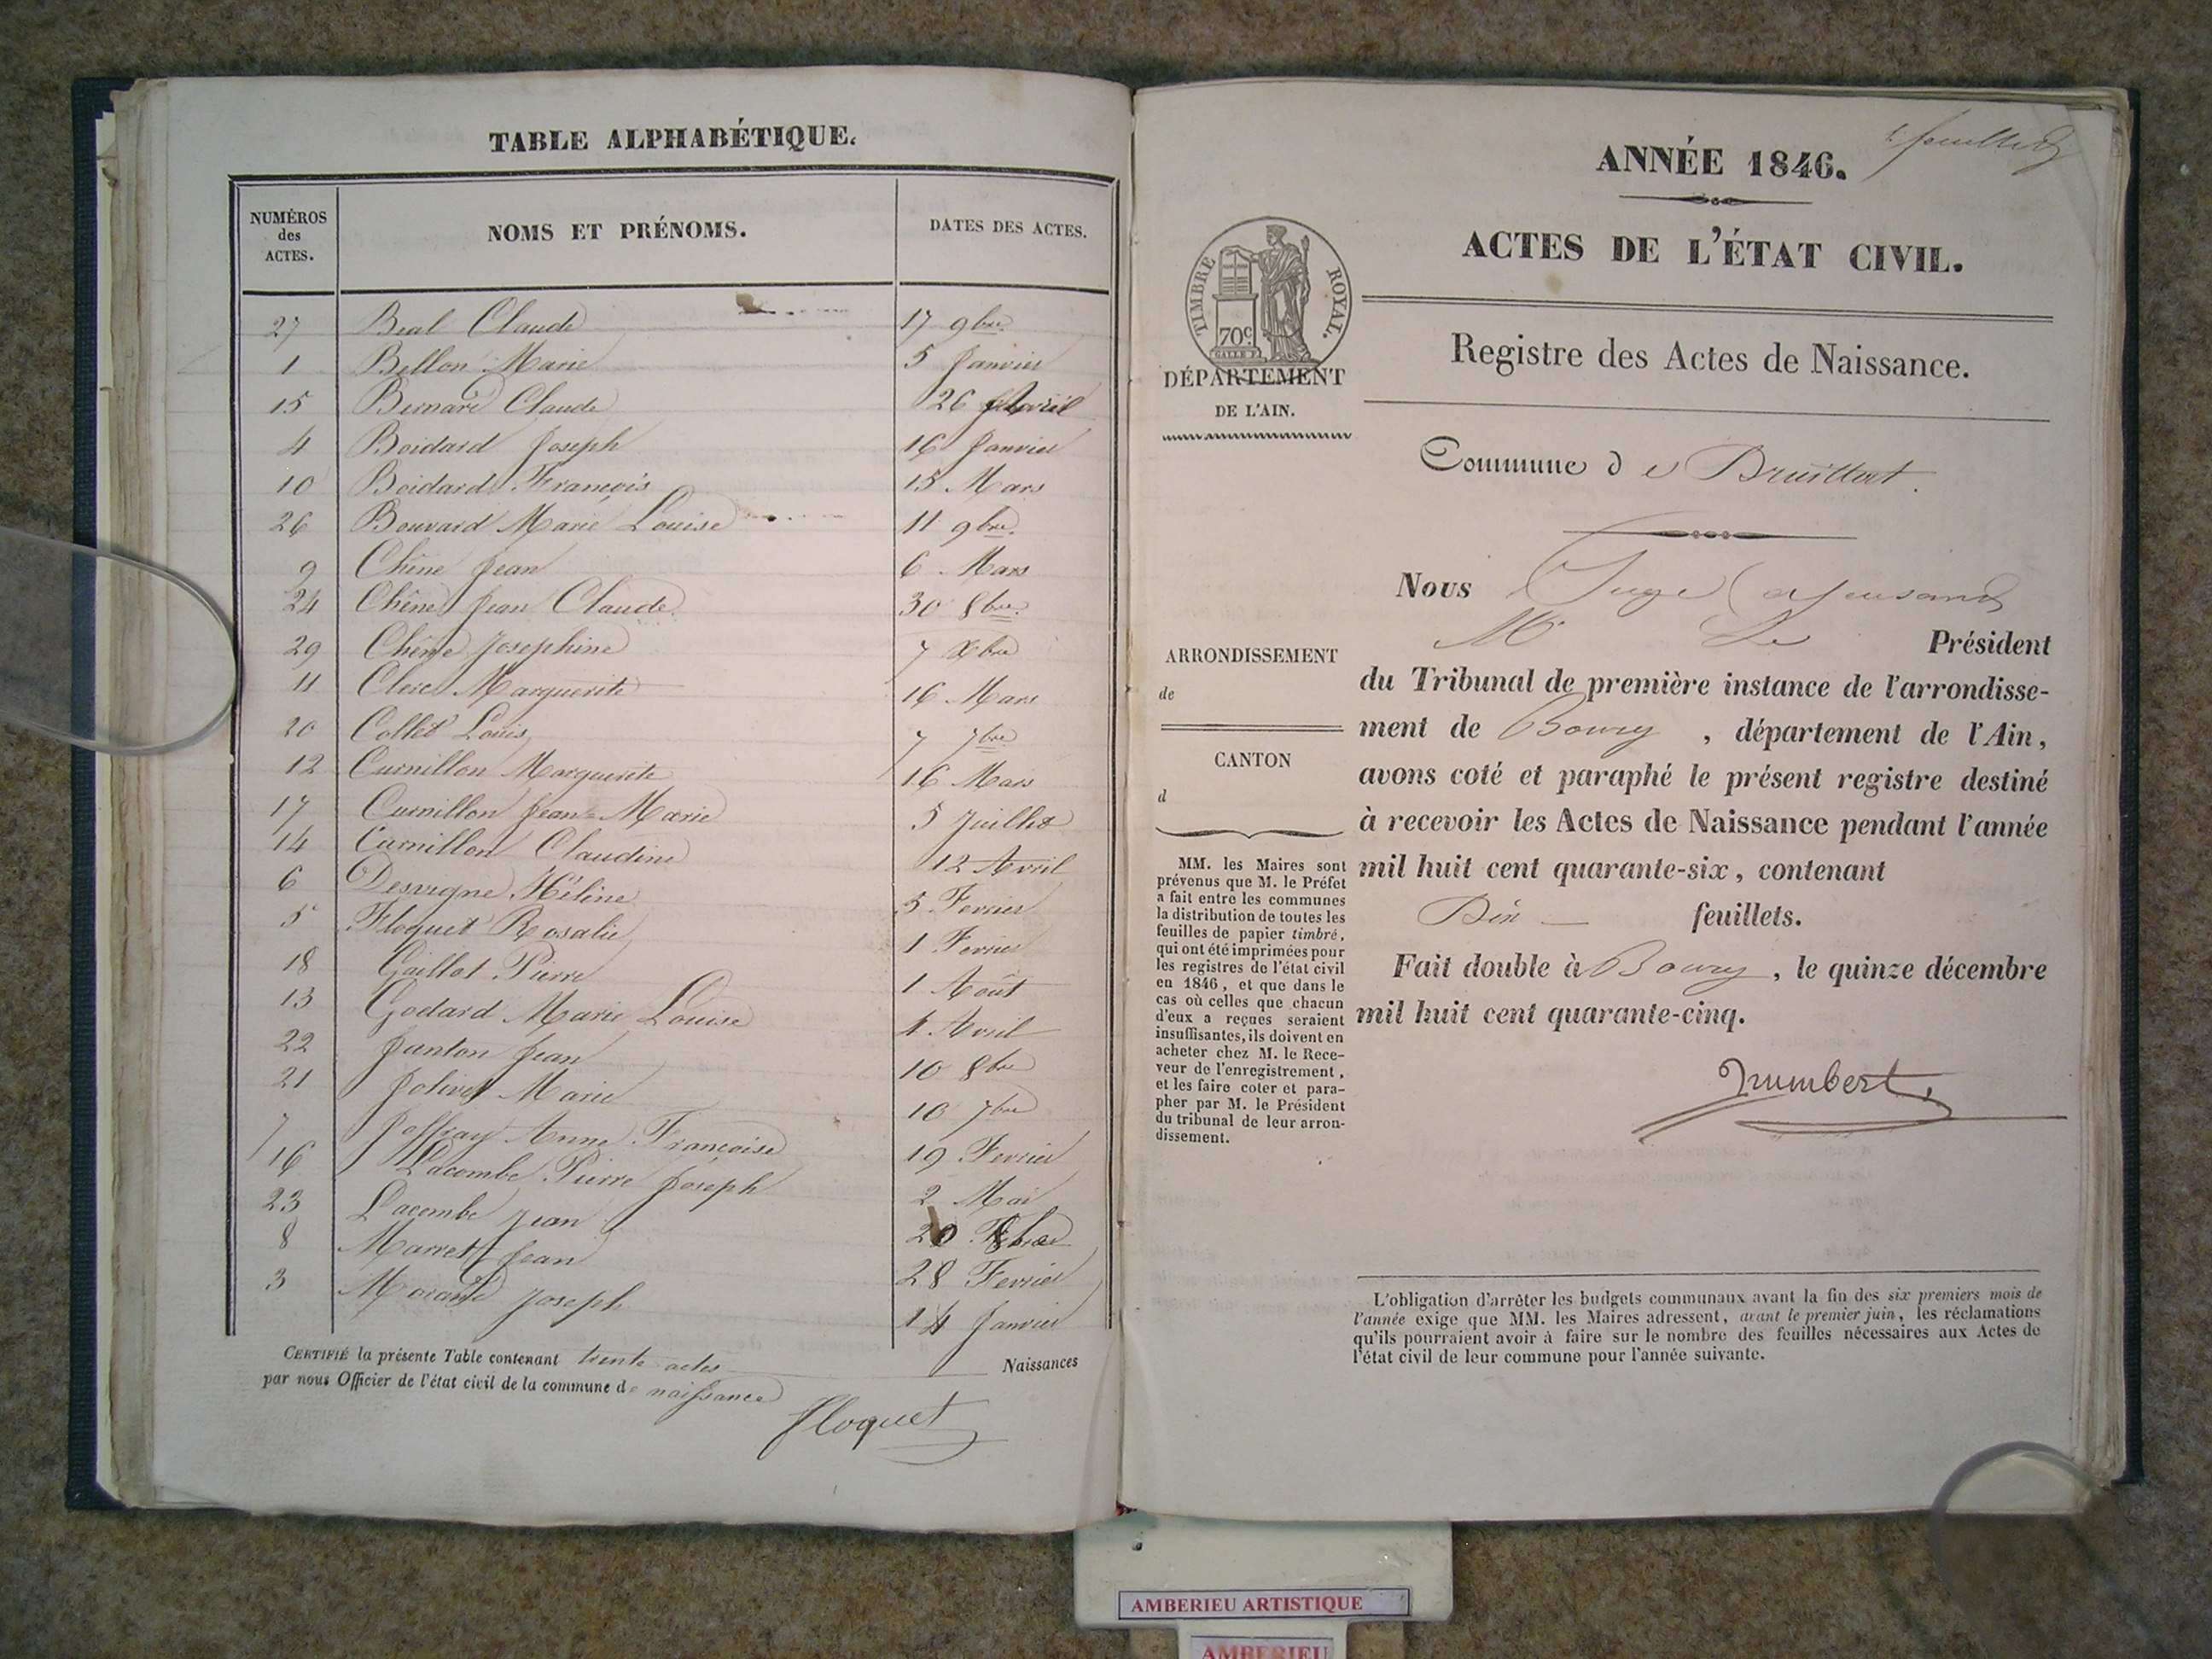 TABLE ALPHABÉTIQUE.
NUMÉROS des ACTES. NOMS ET PRÉNOMS. DATES DES ACTES.
27 Beal Claude 17 9bre
1 Bellon Marie 5 Janvier
15 Bernard Claude 26 Avril
4 Boidard Joseph 16 Janvier
10 Boidard François 15 Mars
26 Bouvard Marie Louise 11 9bre
9 Chêne Jean 6 Mars
24 Chêne Jean Claude 30 8bre
29 Chêne Josephine 7 Xbre
11 Clerc Marguerite 16 Mars
20 Collet Louis 7 7bre
12 Curnillon Marguerite 16 Mars
17 Curnillon Jean-Marie 5 Juillet
14 Curnillon Claudine 12 Avril
6 Desvigne Hélène 5 Fevrier
5 Floquet Rosalie 1 Fevrier
18 Gaillot Pierre 1 Août
13 Godard Marie Louise 4 Avril
22 Janton Jean 10 8bre
21 Jolivet Marie 10 7bre
7 Joffray Anne Françoise 19 Fevrier
16 Lacombe Pierre Joseph 2 Mai
23 Lacombe Jean 20 8bre
8 Marret Jean 28 Fevrier
3 Morand Joseph 14 Janvier
CERTIFIÉ la présente Table contenant trente actes Naissances
par nous Officier de l'état civil de la commune de naissance
Floquet
ANNÉE 1846.
ACTES DE L'ÉTAT CIVIL.
TIMBRE ROYAL.
70c
Registre des Actes de Naissance.
DÉPARTEMENT
DE L'AIN.
Commune de
Nous Juge
Mr Le Président
ARRONDISSEMENT
de
CANTON
d
du Tribunal de première instance de l'arrondisse-
ment de Bourg, département de l'Ain,
avons coté et paraphé le présent registre destiné
à recevoir les Actes de Naissance pendant l'année
mil huit cent quarante-six, contenant
Dix feuillets.
Fait double à Bourg, le quinze décembre
mil huit cent quarante-cinq.
MM. les Maires sont
prévenus que M. le Préfet
a fait entre les communes
la distribution de toutes les
feuilles de papier timbré,
qui ont été imprimées pour
les registres de l'état civil
en 1846, et que dans le
cas où celles que chacun
d'eux a reçues seraient
insuffisantes, ils doivent en
acheter chez M. le Rece-
veur de l'enregistrement,
et les faire coter et para-
pher par M. le Président
du tribunal de leur arron-
dissement.
L'obligation d'arrêter les budgets communaux avant la fin des six premiers mois de
l'année exige que MM. les Maires adressent, avant le premier juin, les réclamations
qu'ils pourraient avoir à faire sur le nombre des feuilles nécessaires aux Actes de
l'état civil de leur commune pour l'année suivante.
AMBERIEU ARTISTIQUE
AMBERIEU